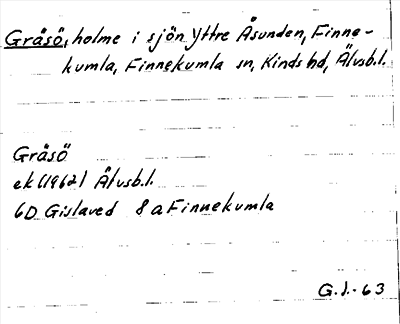 Gråsö, holme i sjön Yttre Åsunden, Finne-
kumla, Finnekumla sn, Kinds hd, Älvsb.l.
Gråsö
ek (1962) Älvsb.l.
6D Gislaved 8a Finnekumla
G.J.-63